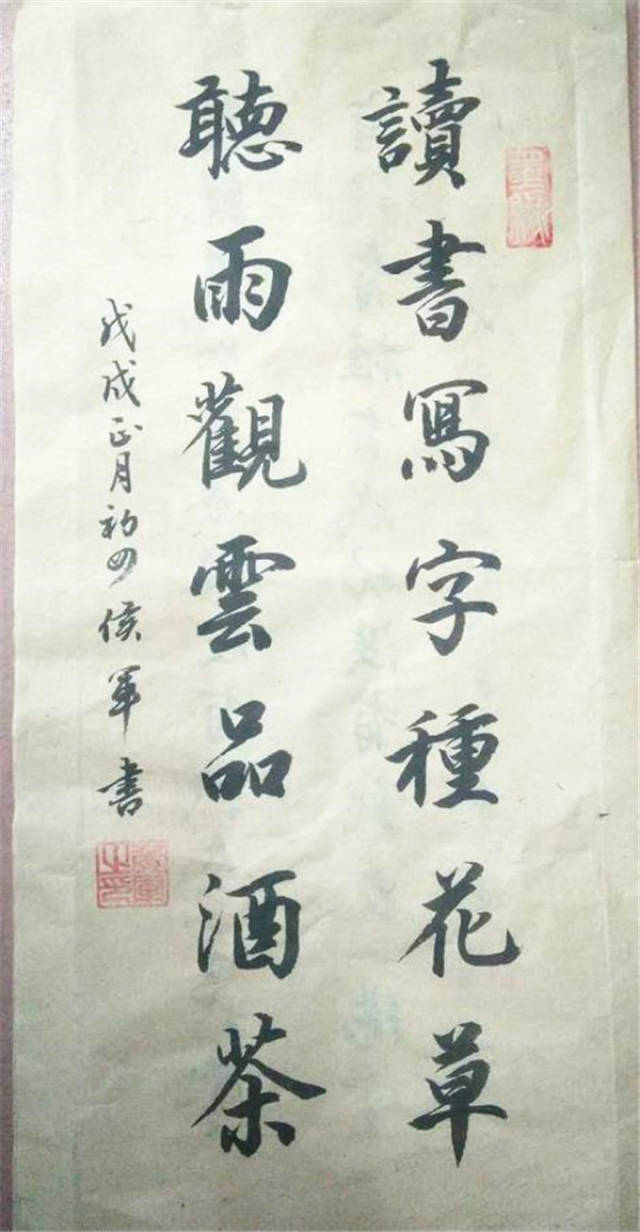 讀書寫字種花草
聽雨觀雲品酒茶
戊戌正月初四侯軍書